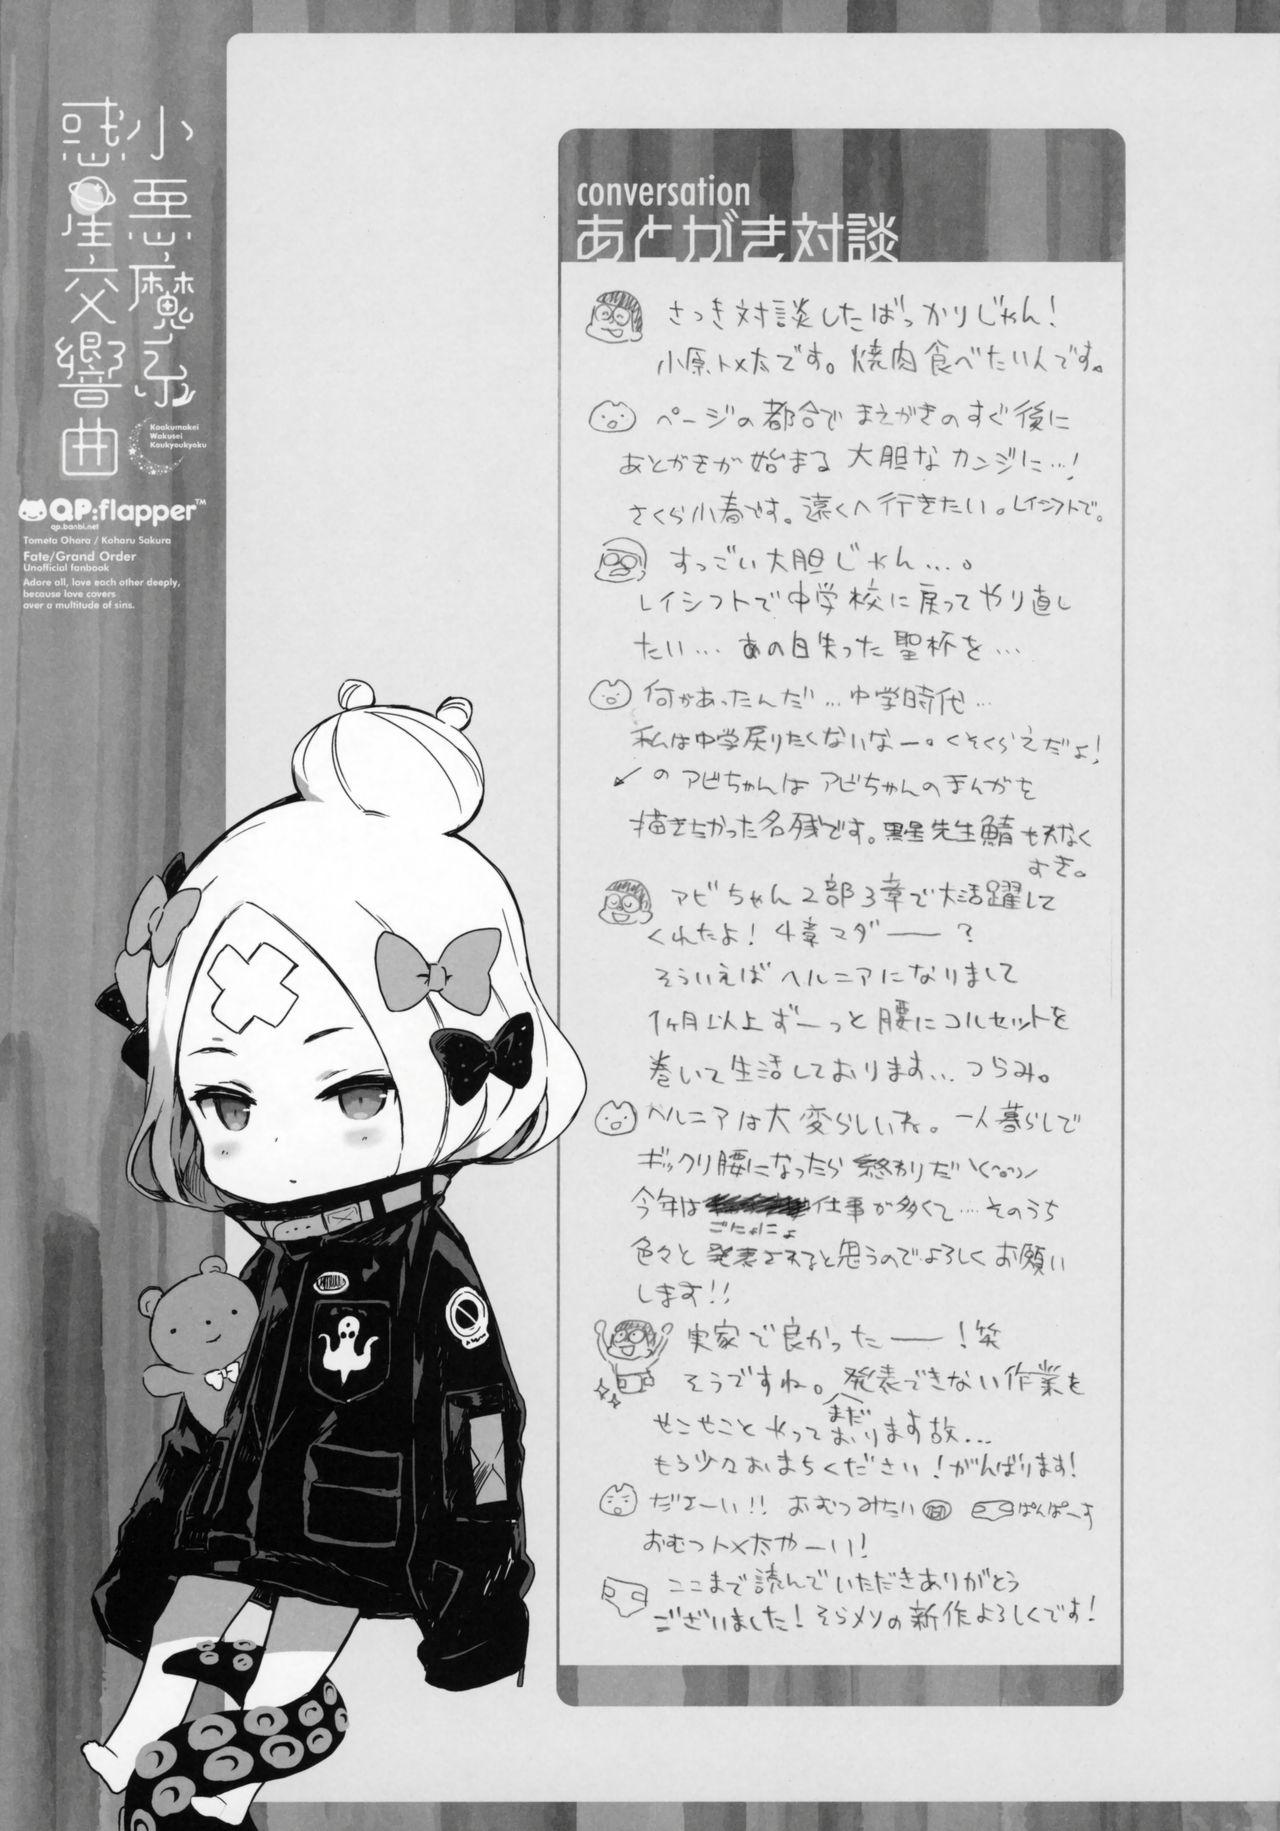 小悪魔系
惑星交響曲
Koakumakei
Wakusei
Koukyoukyoku
QP:flapper™
qp.banbi.net
Tometa Ohara / Koharu Sakura
Fate/Grand Order
Unofficial fanbook
Adore all, love each other deeply,
because love covers
over a multitude of sins.
conversation
あとがき対談
さっき対談したばっかりじゃん!
小原トメ太です。焼肉食べたい人です。
ページの都合でまえがきのすぐ後に
あとがきが始まる大胆なカンジに…!
さくら小春です。遠くへ行きたい。レイシフトで。
すっごい大胆じゃん…。
レイシフトで中学校に戻ってやり直し
たい… あの日失った聖杯を…
何があったんだ…中学時代…
私は中学戻りたくないなー。くそくらえだよ!
↙のアビちゃんはアビちゃんのまんがを
描きたかった名残です。黒星先生鯖も大なく
すき。
アビちゃん2部3章で大活躍して
くれたよ! 4章マダー―?
そういえばヘルニアになりまして
1ヶ月以上ずーっと腰にコルセットを
巻いて生活しております… つらみ。
ヘルニアは大変らしいね。一人暮らしで
ギックリ腰になったら終わりだ
今年は仕事が多くて…そのうち
ごにょにょ
色々と発表されると思うのでよろしくお願い
します!!
実家で良かったー―! 笑
そうですね。発表できない作業を
まだ
せこせことやっております故…
もう少々おまちください! がんばります!
だよーい!! おむつみたい ぱんぱーす
おむつトメ太やーい!
ここまで読んでいただきありがとう
ございました! そらメソの新作よろしくです!